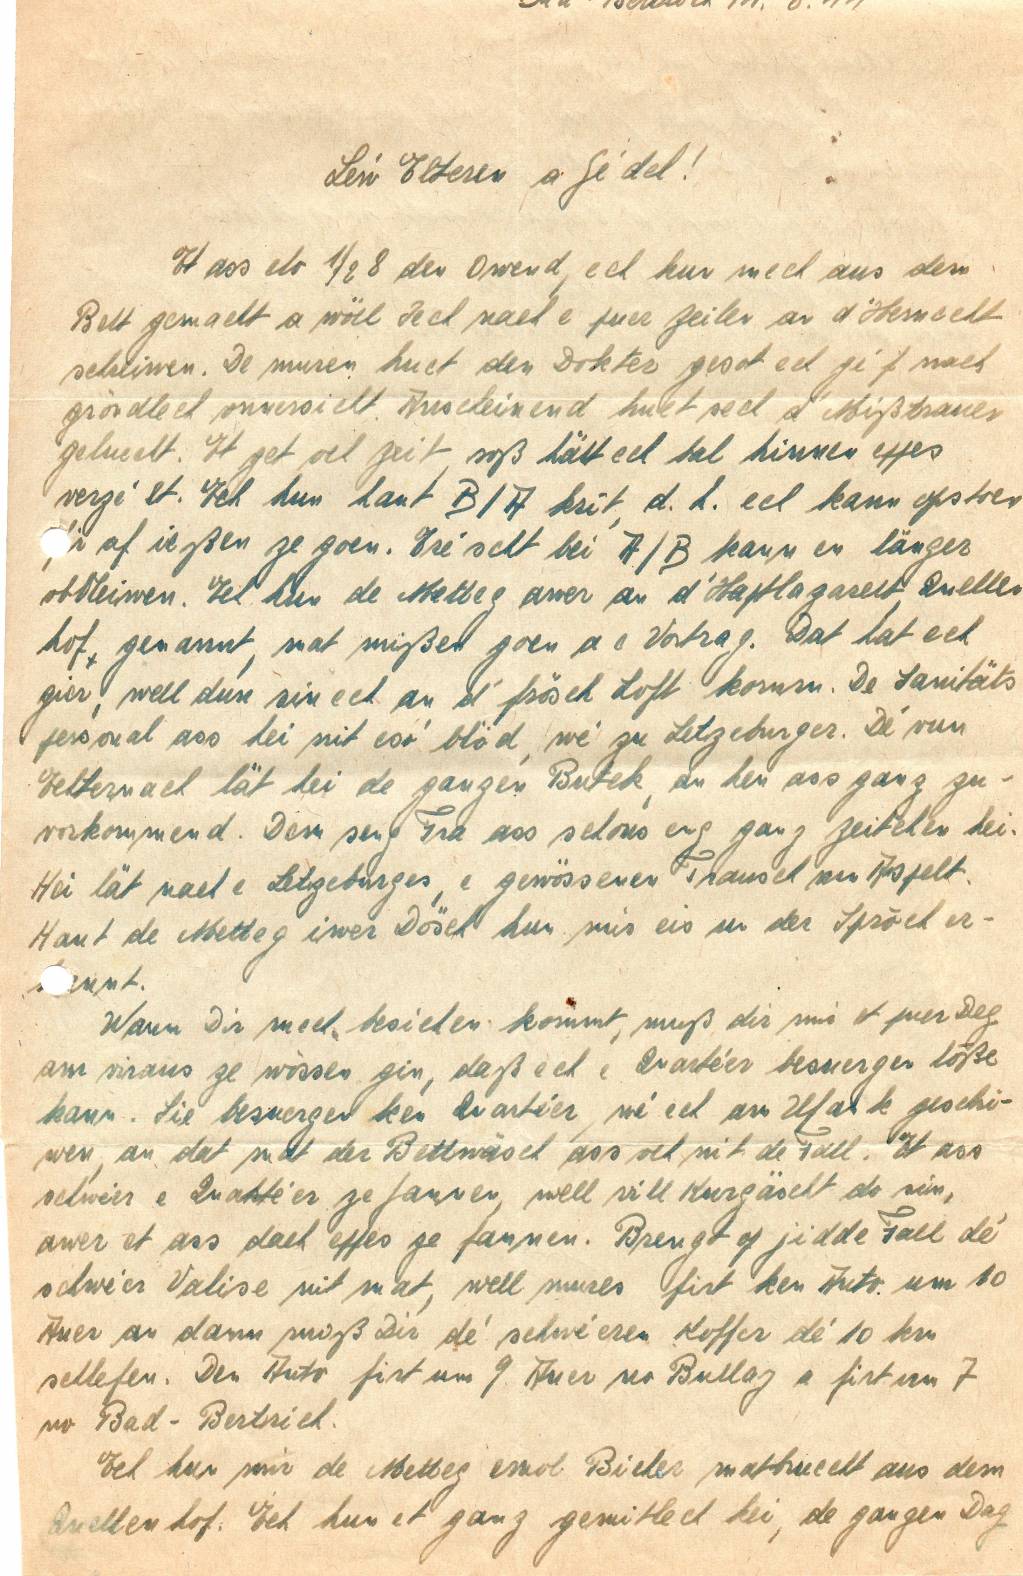 Bad-Bertrich 14. 8. 44
Léiw Elteren a Jédel!
Et ass elo 1/2 8 den Owend, ech hun mech aus dem
Bett gemacht a wöll Iech nach e puer Zeilen an d'Hemecht
schreiwen. De muren huet den Dokter gesot ech gif nach
gröndlech onnersicht. Anscheinend huet sech d'Mißtrauen
geluecht. Et get och Zeit, soß hätt ech hal hinnen effes
verzélt. Ech hun haut B/A krit, d. h. ech kann opstoen
fir af ießen ze goen. Eréischt bei A/B kann en länger
obbleiwen. Ech hun de Metteg awer an d'Haptlazarett, Quellen
hof, genannt, mat mißen goen a e Vortrag. Dat hat ech
gier, well dun sin ech an d' frösch Loft komm. De Sanitäts
personal ass hei nit esó blöd, wé zu Letzeburger. Dé vun
Iechternach lät hei de ganzen Butek, an hen ass ganz zu-
vorkommend. Dem seng Fra ass schons eng ganz Zeitchen hei.
Hei lät nach e Letzeburges, e gewössenen Frausch vun Aspelt.
Haut de Metteg iwer Dösch hun mir eis un der Sprôch er-
kannt.
Wann Dir mech besichen kommt, muß dir mir et puer Deg
am viraus ze wössen gin, daß ech e Quartéer besuergen lôße
kann. Sie besuergen ken Quartéer, wé ech am Ufank geschri-
wen, an dat mat der Bettwäsch ass och nit de Fall. Et ass
schwéer e Quartéer ze fannen, well vill Kurgäscht do sin,
awer et ass dach effes ze fannen. Brengt op jidde Fall dé
schwéer Valise nit mat, well mures firt ken Auto um 10
Auer an dann muß Dir dé schwéeren Koffer dé 10 km
schlefen. Den Auto firt um 9 Auer no Bullay a firt um 7
no Bad-Bertrich.
Ech hun mir de Metteg emol Bicher matbruecht aus dem
Quellenhof. Ech hun et ganz gemitlech hei, de ganzen Dag